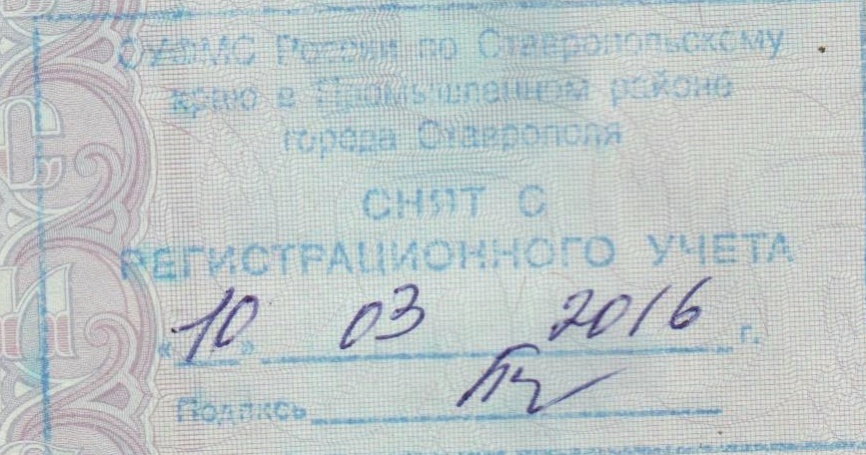 ОУФМС России по Ставропольскому
краю в Промышленном районе
города Ставрополя
СНЯТ С
РЕГИСТРАЦИОННОГО УЧЕТА
«10» 03 2016 г.
Подпись